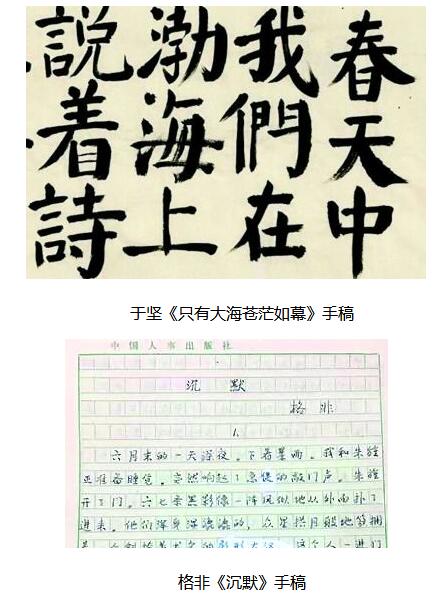 春天中
我們在
渤海上
説着詩
于坚《只有大海苍茫如幕》手稿
中国人事出版社
沉默
格非
1.
六月末的一天深夜，下着暴雨。我和朱
准备睡觉，突然响起了急促的敲门声。朱
开了门。六七条黑影像一阵风似地从外面扑了
进来。他们浑身湿漉漉的，众星拱月般地簇拥
这个人一进门
格非《沉默》手稿